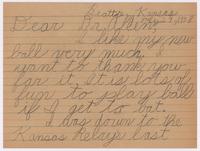 Beattie, Kansas
May 3, 1938
Dear Dr. Allen,
I like my new
ball very much. I
want to thank you
for it. It is lots of
fun to play ball
if I get to bat.
I was down to the
Kansas Relays last